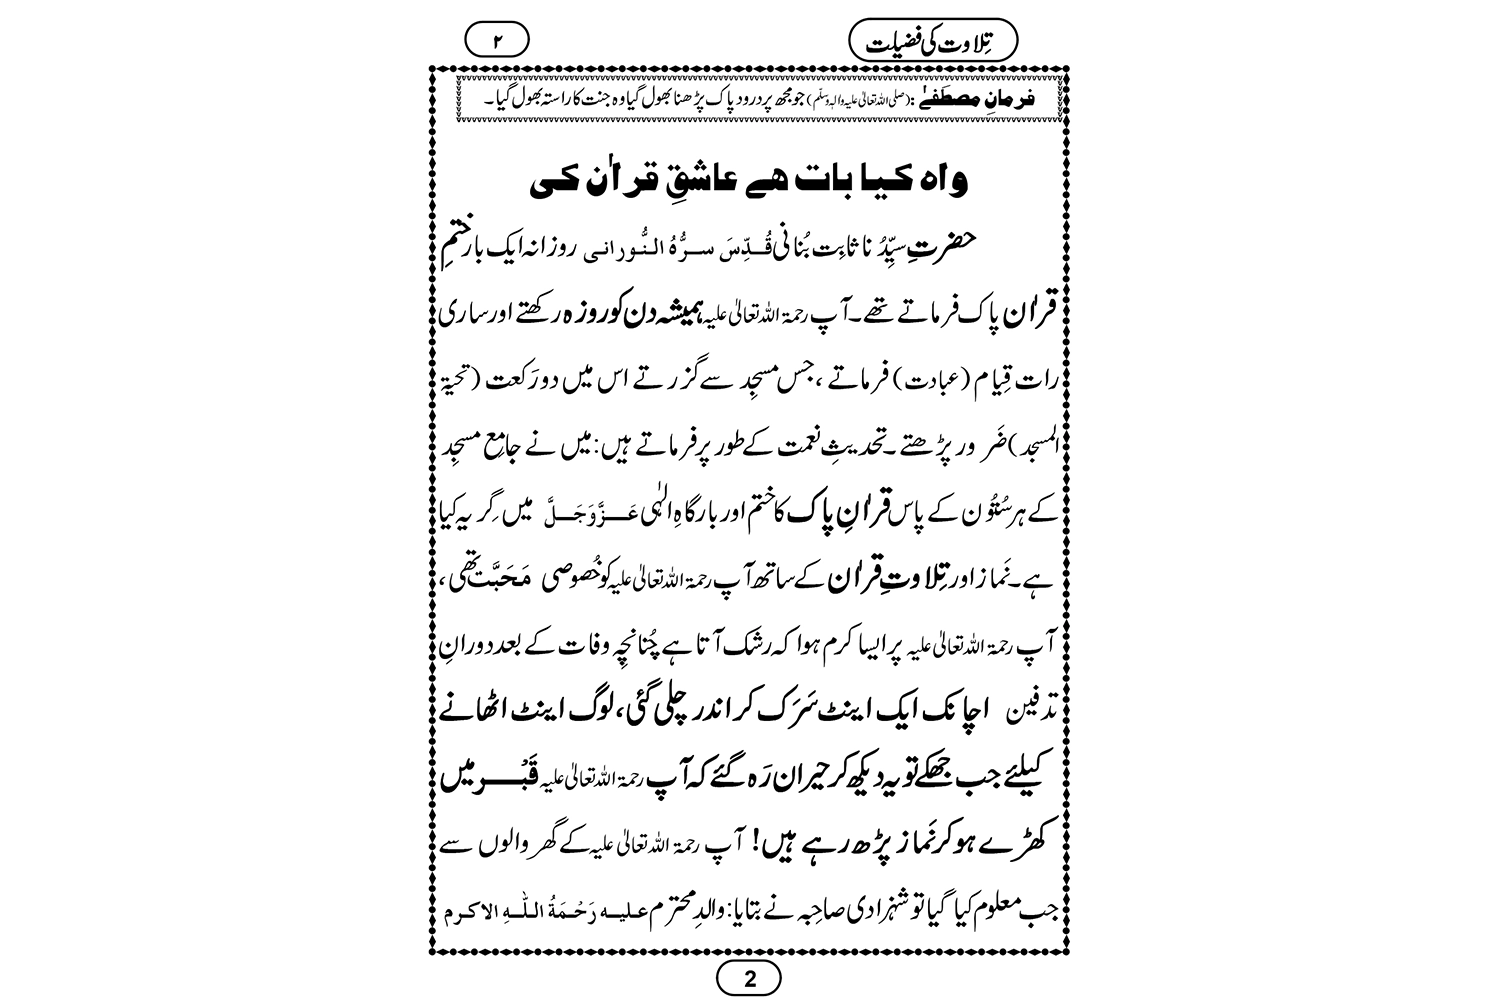 تِلاوت کی فضیلت
۲
فرمانِ مصطَفےٰ :(صلی اللہ تعالیٰ علیہ والہٖ وسلّم) جو مجھ پر درود پاک پڑھنا بھول گیا وہ جنت کا راستہ بھول گیا ۔
واہ کیا بات ھے عاشقِ قراٰن کی
حضرتِ سیِّدُ نا ثابِت بُنانی قُدِّسَ سرُّہُ النُّورانی روزانہ ایک بار ختمِ
قراٰن پاک فرماتے تھے۔ آپ رحمۃ اللہ تعالیٰ علیہ ہمیشہ دن کو روزہ رکھتے اور ساری
رات قِیام (عبادت) فرماتے ، جس مسجِد سے گزرتے اس میں دو رَکعت (تحیۃ
المسجد) ضَرور پڑھتے ۔ تحدیثِ نعمت کے طور پر فرماتے ہیں: میں نے جامِع مسجِد
کے ہر سُتُون کے پاس قراٰنِ پاک کا ختم اور بارگاہِ الٰہی عَزَّوَجَلَّ میں گِریہ کیا
ہے۔ نَماز اور تِلاوتِ قراٰن کے ساتھ آپ رحمۃ اللہ تعالیٰ علیہ کو خُصوصی مَحَبَّت تھی،
آپ رحمۃ اللہ تعالیٰ علیہ پر ایسا کرم ہوا کہ رشک آتا ہے چُنانچِہ وفات کے بعد دورانِ
تدفین اچانک ایک اینٹ سَرَک کر اندر چلی گئی، لوگ اینٹ اٹھانے
کیلئے جب جھکے تو یہ دیکھ کر حیران رَہ گئے کہ آپ رحمۃ اللہ تعالیٰ علیہ قَبْر میں
کھڑے ہو کر نَماز پڑھ رہے ہیں! آپ رحمۃ اللہ تعالیٰ علیہ کے گھر والوں سے
جب معلوم کیا گیا تو شہزادی صاحِبہ نے بتایا: والِدِ محترم علیہ رَحْمَۃُ اللّٰہِ الاکرم
2